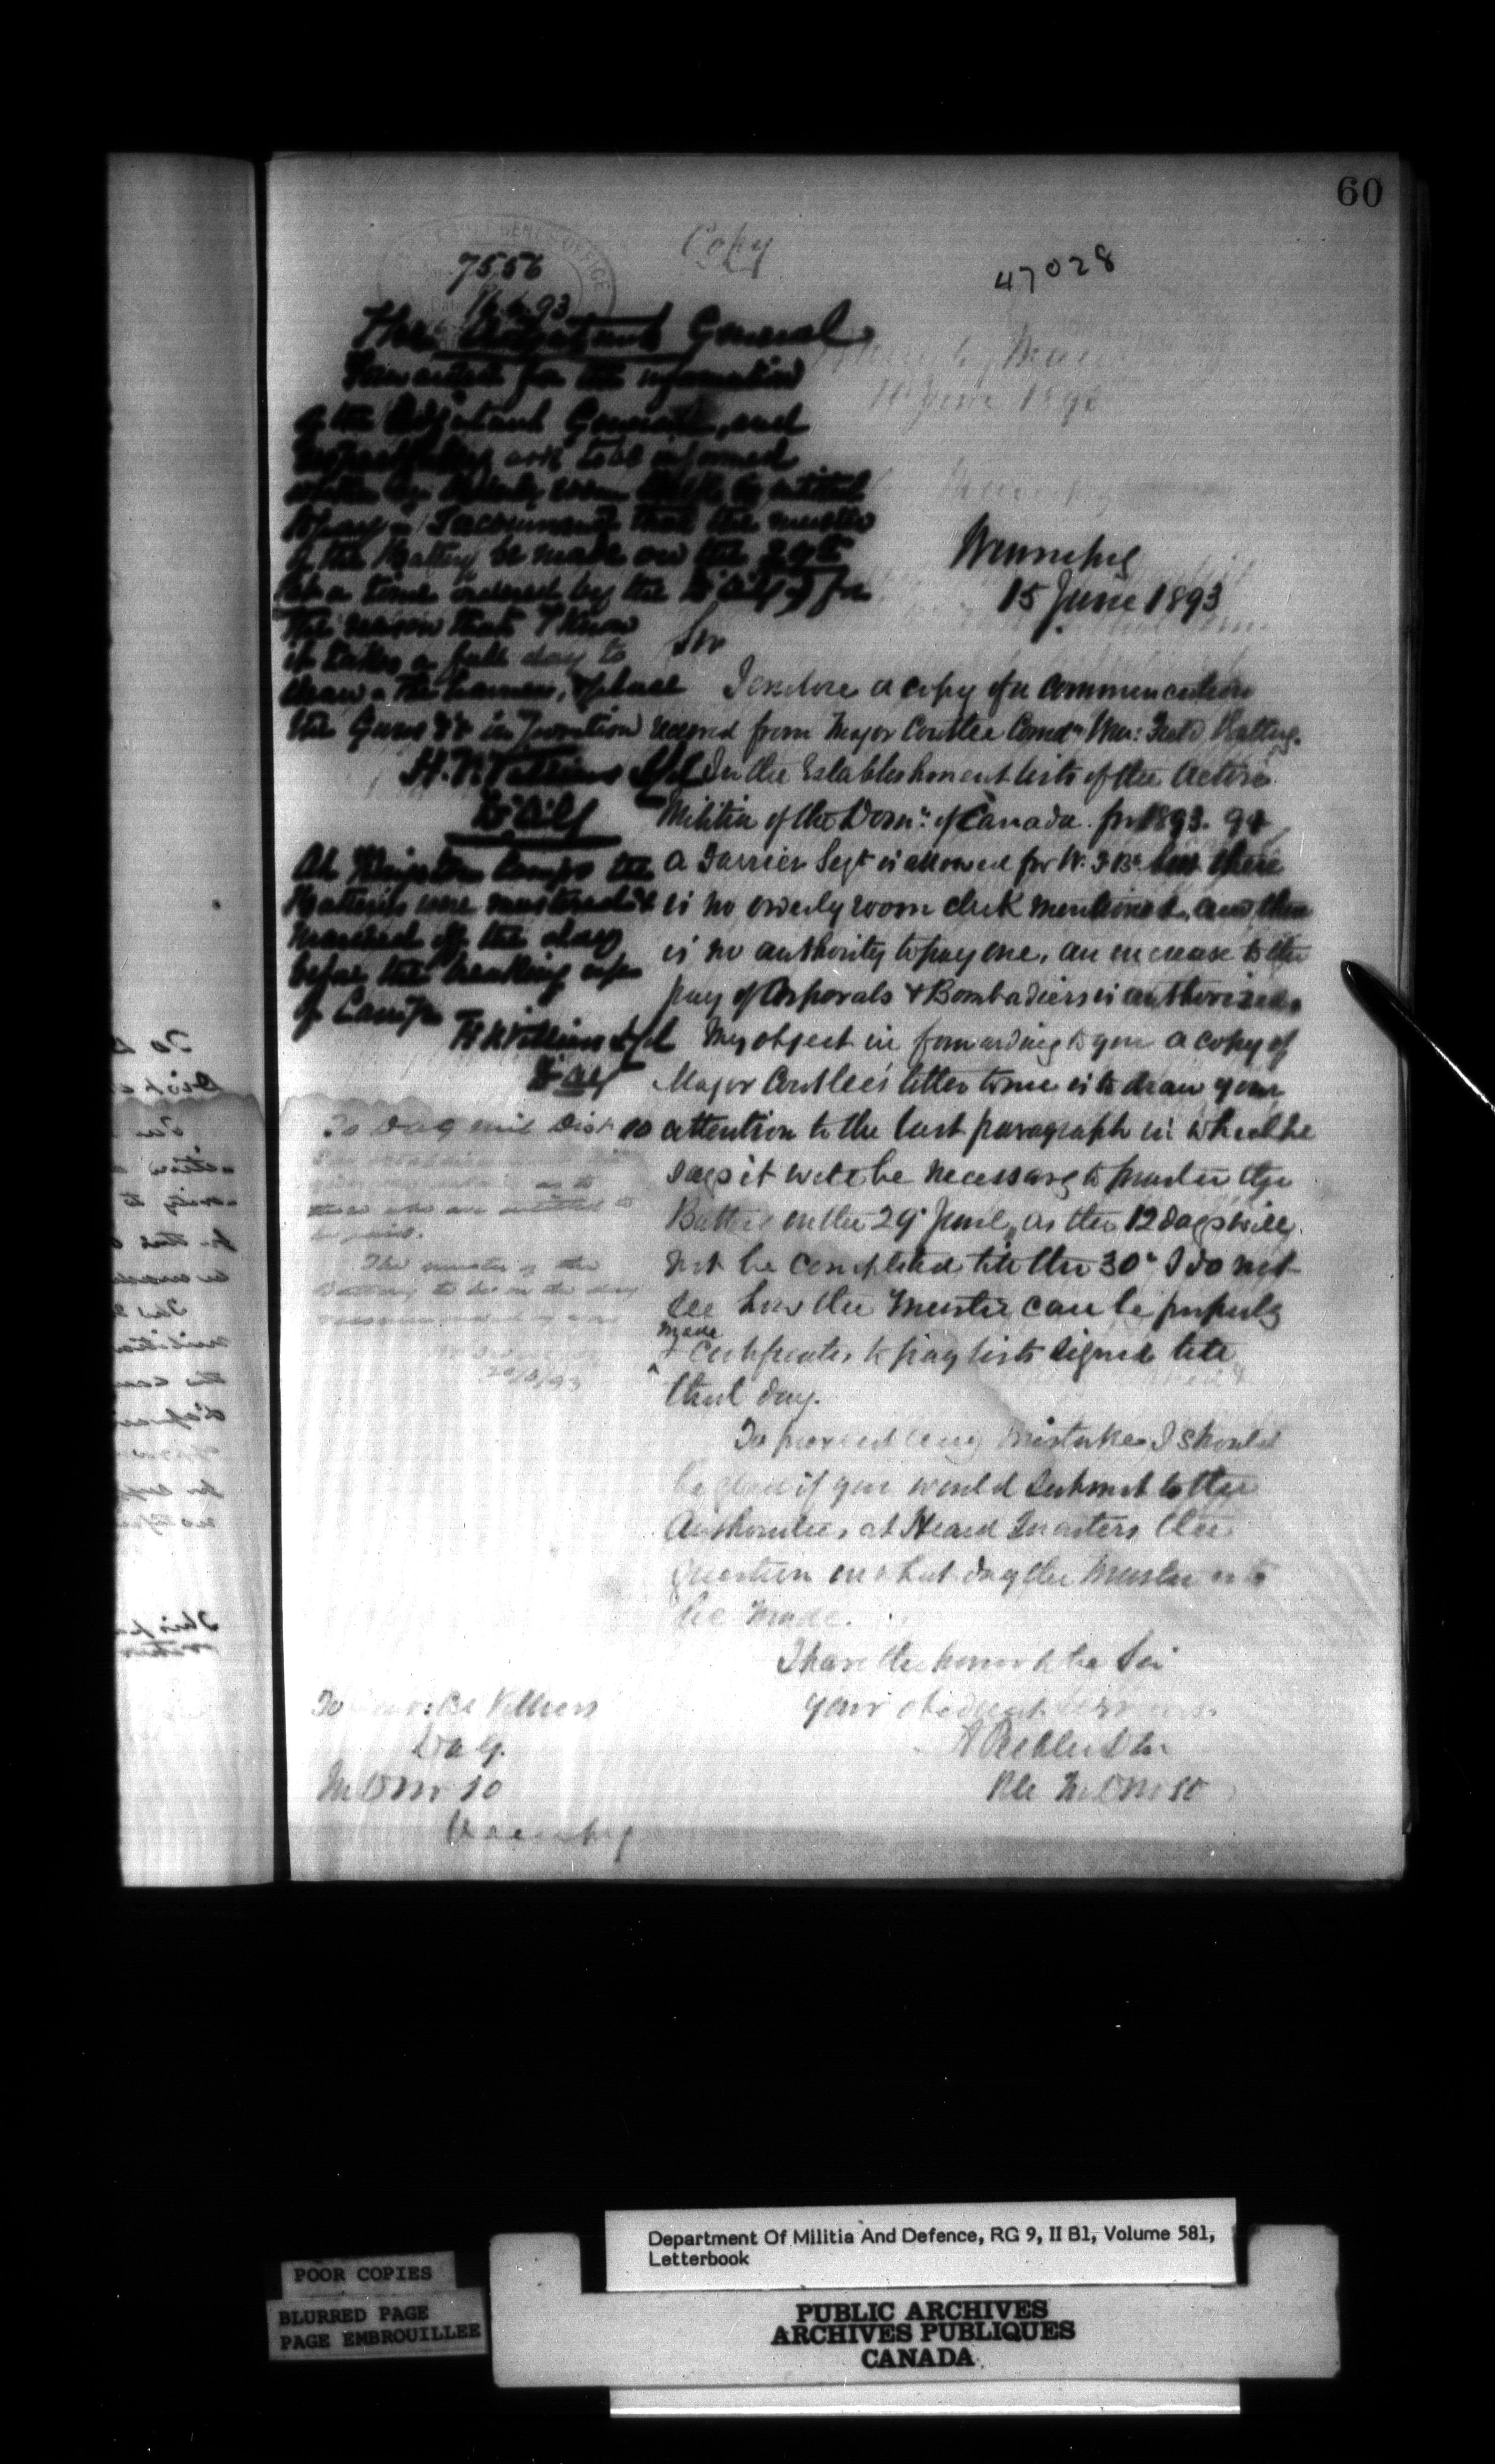 60
Copy
47028
7556
16.6.93
The Adjutant General
Forwarded for the information
of the Adjutant General, and
respectfully ask to be informed
whether Orderly room Clerk is entitled
to pay - I recommend that the muster
of the Battery be made on the 29th
at a time ordered by the DAG for
the reason that I know
it takes a full day to
the harness, & place
the Guns &c in
H. Villiers Lt Col
DAG
At Kingston Camps the
Batteries were mustered &
marched off the day
before the breaking up
of Camp
H Villiers Lt Col
DAG
To DAG Mil Dist 10
as to
those who are entitled to
be paid.
The muster of the
Battery to be on the day
recommended by you
20/6/93
Winnipeg
15 June 1893
Sir
I enclose a copy of a communication
received from Major Coutlee Comdg Win: Field Battery.
In the Establishment lists of the Active
Militia of the Domn: of Canada for 1893. 94
a Farrier Sergt is allowed for W. F. B. but there
is no orderly room clerk mentioned, and there
is no authority to pay one, an increase to the
pay of Corporals & Bombadiers is authorized.
My object in forwarding to you a copy of
Major Coutlee's letter to me is to draw your
attention to the last paragraph in which he
says it will be necessary to muster the
Battery on the 29th June, as the 12 days will
not be completed till the 30th I do not
see how the muster can be properly
made
& certificates to pay lists signed till
that day.
To prevent any mistake I should
be glad if you would submit to the
Authorities at Head Quarters the
question on what day the muster is to
be made.
I have the honor to be Sir
your obedient servant
A Peebles Lt Col
MD No 10
To Villiers
DAG.
M D No 10
Winnipeg
Department Of Militia And Defence, RG 9, II B1, Volume 581,
Letterbook
POOR COPIES
BLURRED PAGE
PAGE EMBROUILLEE
PUBLIC ARCHIVES
ARCHIVES PUBLIQUES
CANADA